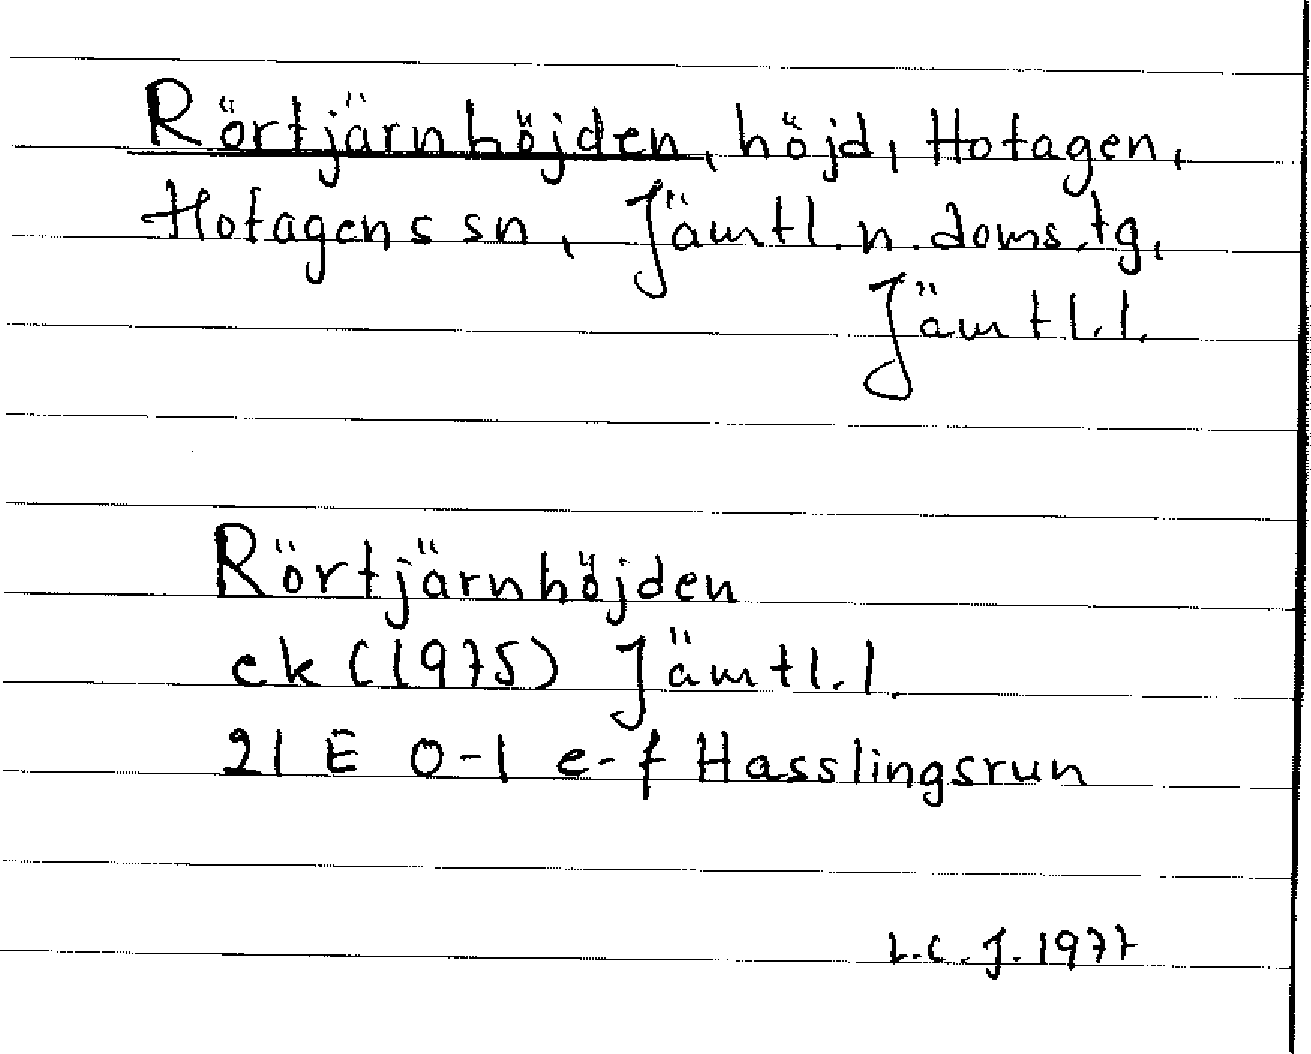 Rörtjärnhöjden, höjd, Hotagen,
Hotagens sn, Jämtl. n. doms. tg,
Jämtl. l.
Rörtjärnhöjden
ek (1975) Jämtl. l.
21 E 0-1 e-f Hasslingsrun
L.C.J. 1977